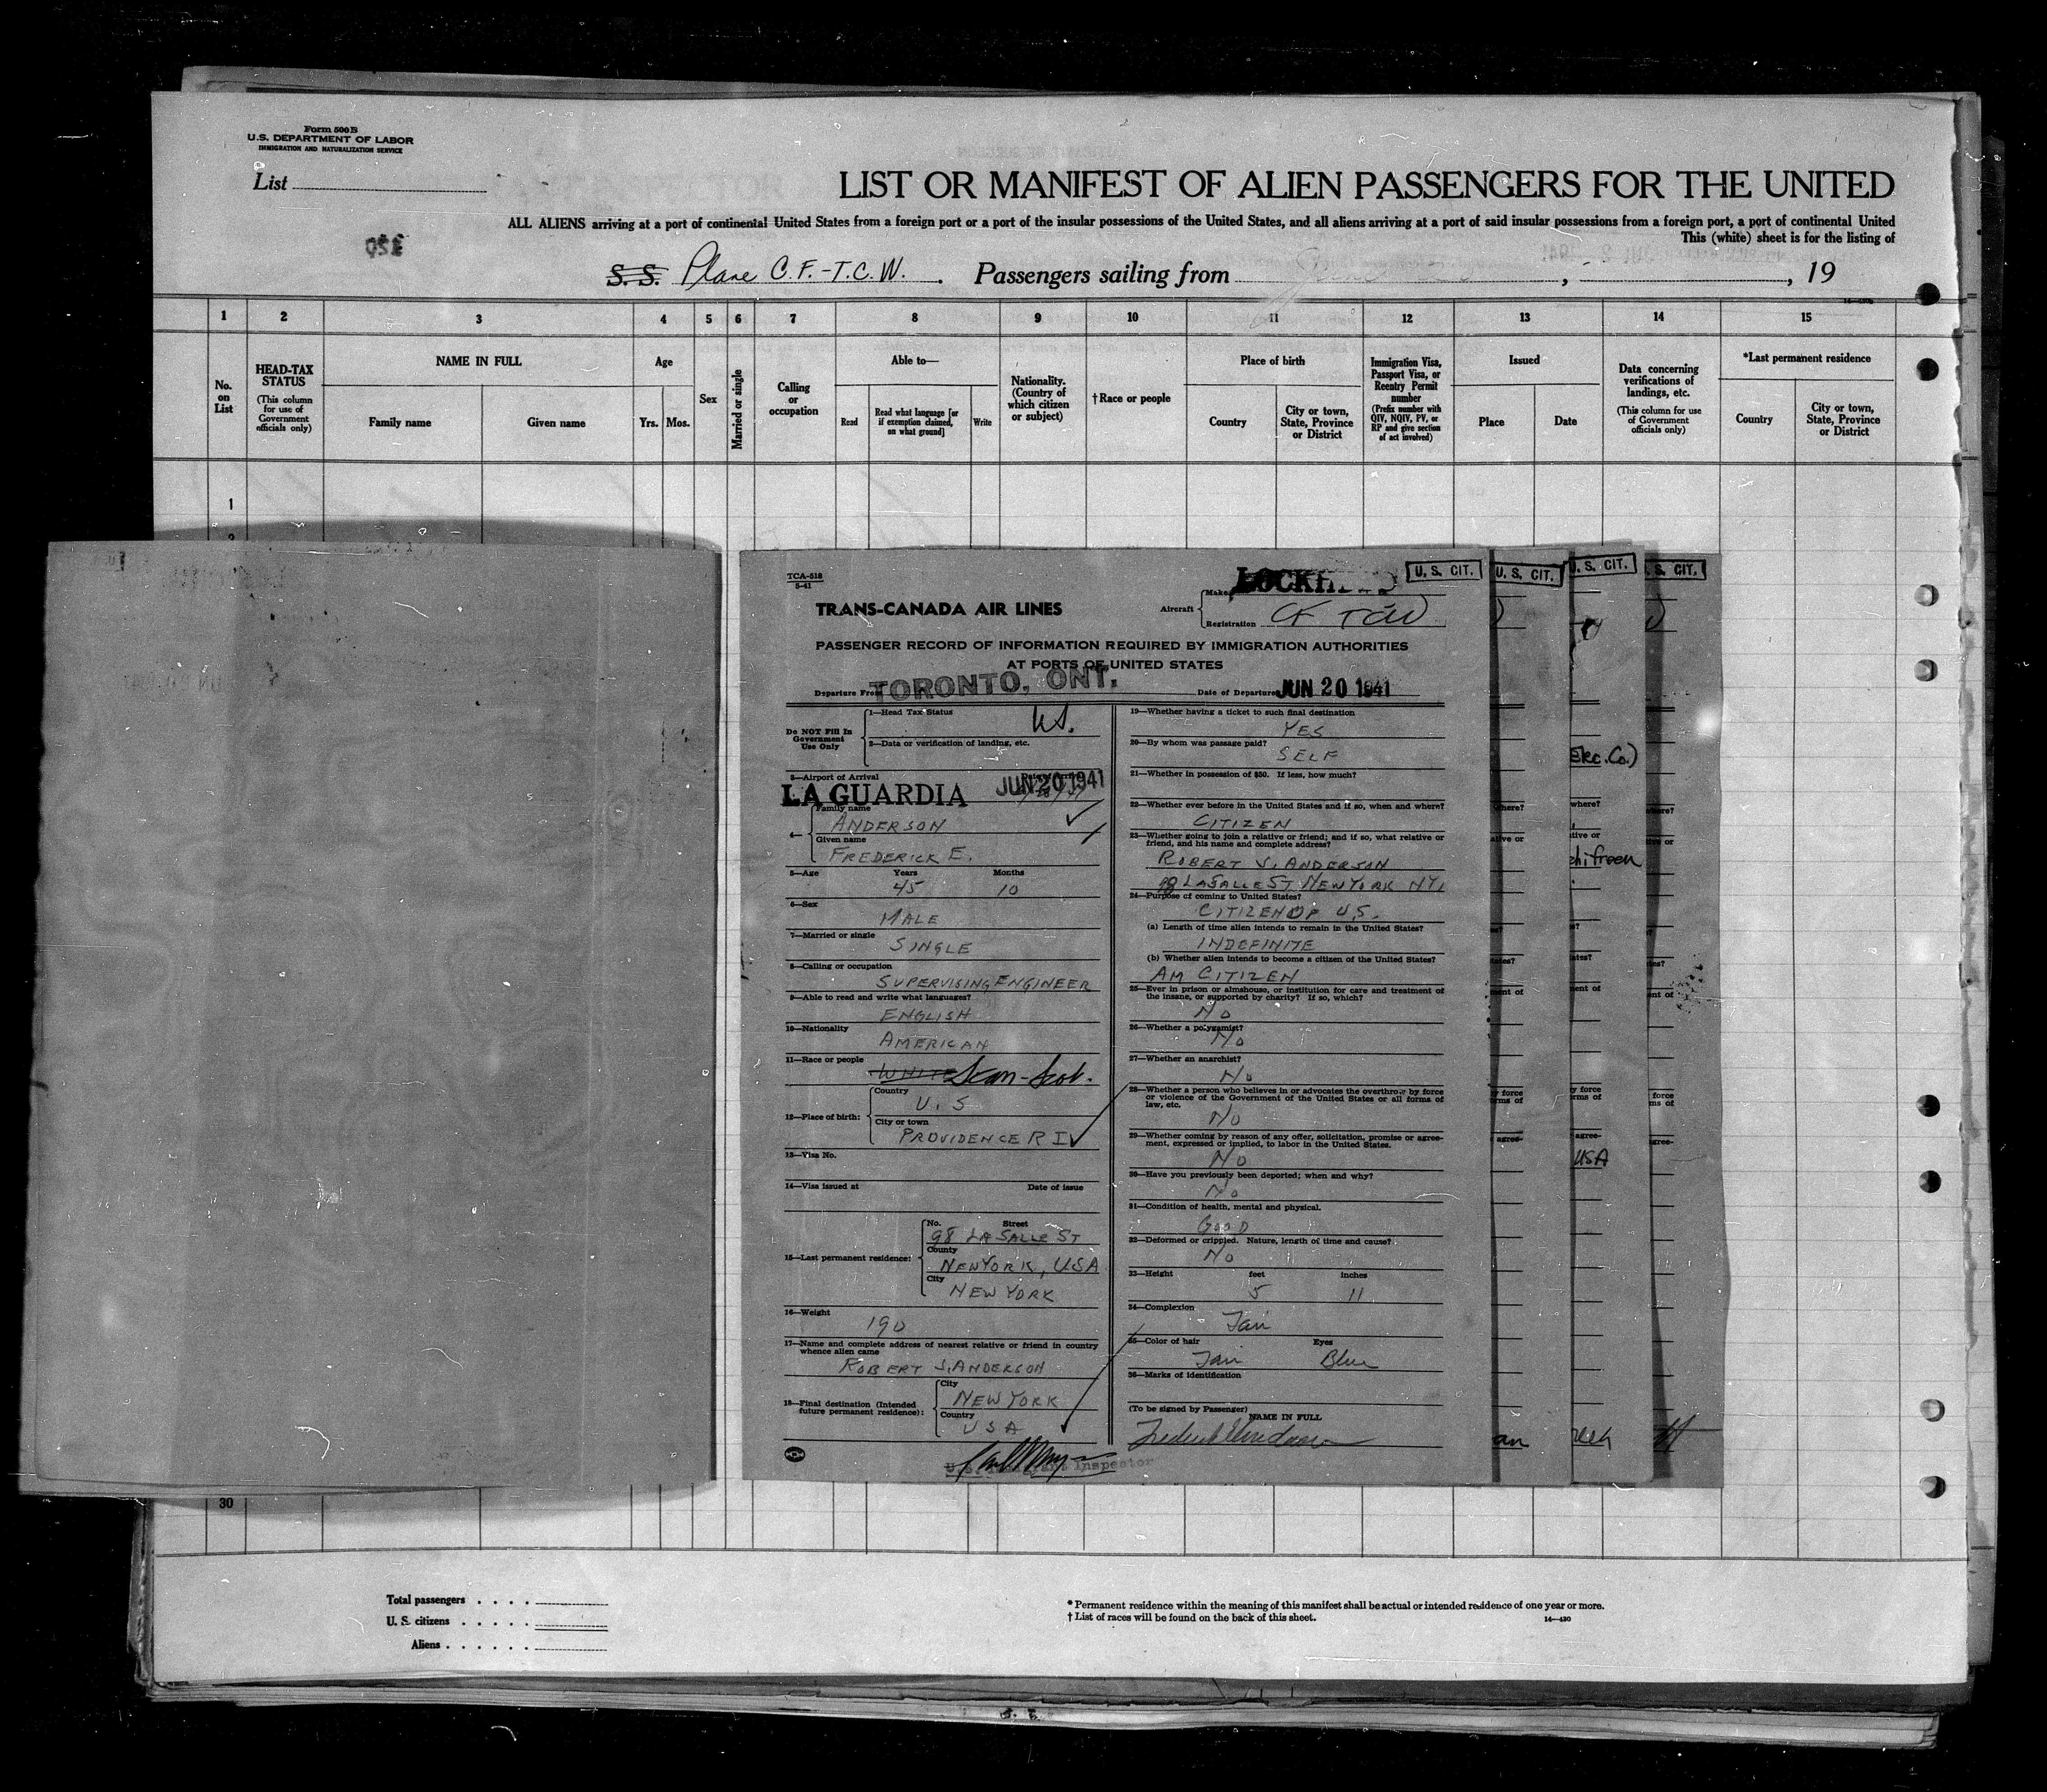 Form 500 B
U.S. DEPARTMENT OF LABOR
IMMIGRATION AND NATURALIZATION SERVICE
List
LIST OR MANIFEST OF ALIEN PASSENGERS FOR THE UNITED
ALL ALIENS arriving at a port of continental United States from a foreign port or a port of the insular possessions of the United States, and all aliens arriving at a port of said insular possessions from a foreign port, a port of continental United
This (white) sheet is for the listing of
S. S. Plane C.F.-T.C.W. . Passengers sailing from , , 19
1 2 3 4 5 6 7 8 9 10 11 12 13 14 15
No. on List
HEAD-TAX STATUS
(This column for use of Government officials only)
NAME IN FULL
Family name Given name
Age
Yrs. Mos.
Sex
Married or single
Calling or occupation
Able to—
Read
Read what language [or if exemption claimed, on what ground]
Write
Nationality. (Country of which citizen or subject)
† Race or people
Place of birth
Country
City or town, State, Province or District
Immigration Visa, Passport Visa, or Reentry Permit number
(Prefix number with QIV, NQIV, PV, or RP and give section of act involved)
Issued
Place Date
Data concerning verifications of landings, etc.
(This column for use of Government officials only)
*Last permanent residence
Country
City or town, State, Province or District
1
TCA-518
5-41
TRANS-CANADA AIR LINES
Aircraft
Make
Registration CF TCW
U. S. CIT.
U. S. CIT.
U. S. CIT.
S. CIT.
PASSENGER RECORD OF INFORMATION REQUIRED BY IMMIGRATION AUTHORITIES
AT PORTS OF UNITED STATES
Departure From TORONTO, ONT. Date of Departure JUN 20 1941
Do NOT Fill In Government Use Only
1—Head Tax Status US.
2—Data or verification of landing, etc.
3—Airport of Arrival
LA GUARDIA JUN 20 1941
4—
Family name
ANDERSON
Given name
FREDERICK E.
5—Age Years Months
45 10
6—Sex
MALE
7—Married or single
SINGLE
8—Calling or occupation
SUPERVISING ENGINEER
9—Able to read and write what languages?
ENGLISH
10—Nationality
AMERICAN
11—Race or people
WHITE Scan-Scot.
12—Place of birth:
Country
U. S
City or town
PROVIDENCE R I
13—Visa No.
14—Visa issued at Date of issue
15—Last permanent residence:
No. Street
98 LA SALLE ST
County
NEW YORK, USA
City
NEW YORK
16—Weight
190
17—Name and complete address of nearest relative or friend in country whence alien came
ROBERT J. ANDERSON
18—Final destination (Intended future permanent residence):
City
NEW YORK
Country
USA
Inspector
19—Whether having a ticket to such final destination
YES
20—By whom was passage paid?
SELF
21—Whether in possession of $50. If less, how much?
22—Whether ever before in the United States and if so, when and where?
CITIZEN
23—Whether going to join a relative or friend; and if so, what relative or friend, and his name and complete address?
ROBERT J. ANDERSON
98 LASALLE ST NEW YORK NY,
24—Purpose of coming to United States?
CITIZEN OF U.S.
(a) Length of time alien intends to remain in the United States?
INDEFINITE
(b) Whether alien intends to become a citizen of the United States?
AM CITIZEN
25—Ever in prison or almshouse, or institution for care and treatment of the insane, or supported by charity? If so, which?
NO
26—Whether a polygamist?
NO
27—Whether an anarchist?
NO
28—Whether a person who believes in or advocates the overthrow by force or violence of the Government of the United States or all forms of law, etc.
NO
29—Whether coming by reason of any offer, solicitation, promise or agreement, expressed or implied, to labor in the United States.
NO
30—Have you previously been deported; when and why?
NO
31—Condition of health, mental and physical.
GOOD
32—Deformed or crippled. Nature, length of time and cause?
NO
33—Height feet inches
5 11
34—Complexion
Fair
35—Color of hair Eyes
Fair Blue
36—Marks of identification
(To be signed by Passenger)
NAME IN FULL
Elec. Co.)
USA
30
Total passengers
U. S. citizens
Aliens
* Permanent residence within the meaning of this manifest shall be actual or intended residence of one year or more.
† List of races will be found on the back of this sheet. 14—430